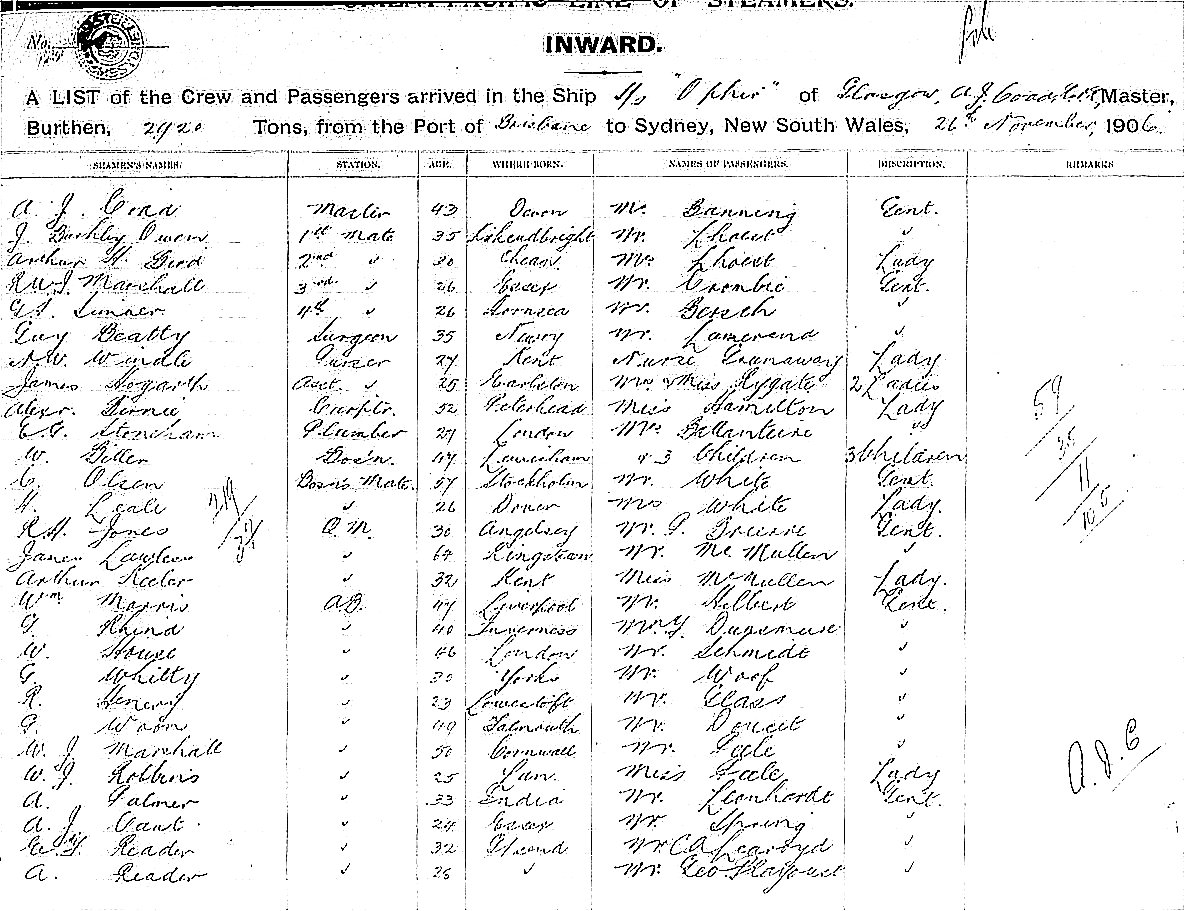 LINE OF STEAMERS.
No.
INWARD.
A LIST of the Crew and Passengers arrived in the Ship S/s "Ophir" of Glasgow, A.J. Master,
Burthen, 2920 Tons, from the Port of Brisbane to Sydney, New South Wales, 26th November, 1906.
SEAMEN'S NAMES. STATION. AGE. WHERE BORN. NAMES OF PASSENGERS. DESCRIPTION. REMARKS
A. J. Coad Master 43 Devon Mr. Banning Gent.
J. Berkley Owen 1st Mate 35 Mr. Lhoest "
Arthur H. 2nd " 30 Cheam Mrs Lhoest Lady
R.W.J. Marshall 3rd " 26 Essex Mr. Crombie Gent.
Sumner 4th " 26 Hornsea Mr. "
Guy Beatty Surgeon 35 Newry Mr. "
N.W. Windle Purser 27 Kent Nurse Greenaway Lady
James Hogarth Asst. " 25 Mrs & Miss Lygate 2 Ladies
Alexr. Birnie Carptr. 52 Peterhead Miss Hamilton Lady
Stoneham Plumber 27 London Mrs Ballantine "
W. Bos'n. 47 Lewisham & 3 Children 3 Children
C. Olsen Bosn's Mate. 57 Stockholm Mr. White Gent.
H. Leale " 26 Dover Mrs White Lady.
R.H. Jones Q.M. 30 Angelsey Mr. Gent.
James Lawless " 64 Kingstown Mr. McMullen "
Arthur Keeler " 32 Kent Miss McMullen Lady.
Wm. Morris A.B. 47 Liverpool Mr. Hilbert Gent.
G. Rhind " 40 Inverness Mr. "
W. House " 46 London Mr. Schmidt "
G. Whitty " 30 Yorks Mr. Woof "
R. Henery " 23 Lowestoft Mr. Glass "
G. Woon " 49 Falmouth Mr. "
W. J. Marshall " 50 Cornwall Mr. Gale "
W. J. Robbins " 25 Miss Gale Lady
A. Palmer " 33 India Mr. Leonhardt Gent.
A. J. Cant " 24 Essex Mr. Spring "
Reader " 32 Mr C A Learoyd "
A. Reader " 26 " Mr. Geo Playoust "
59
35
11
105